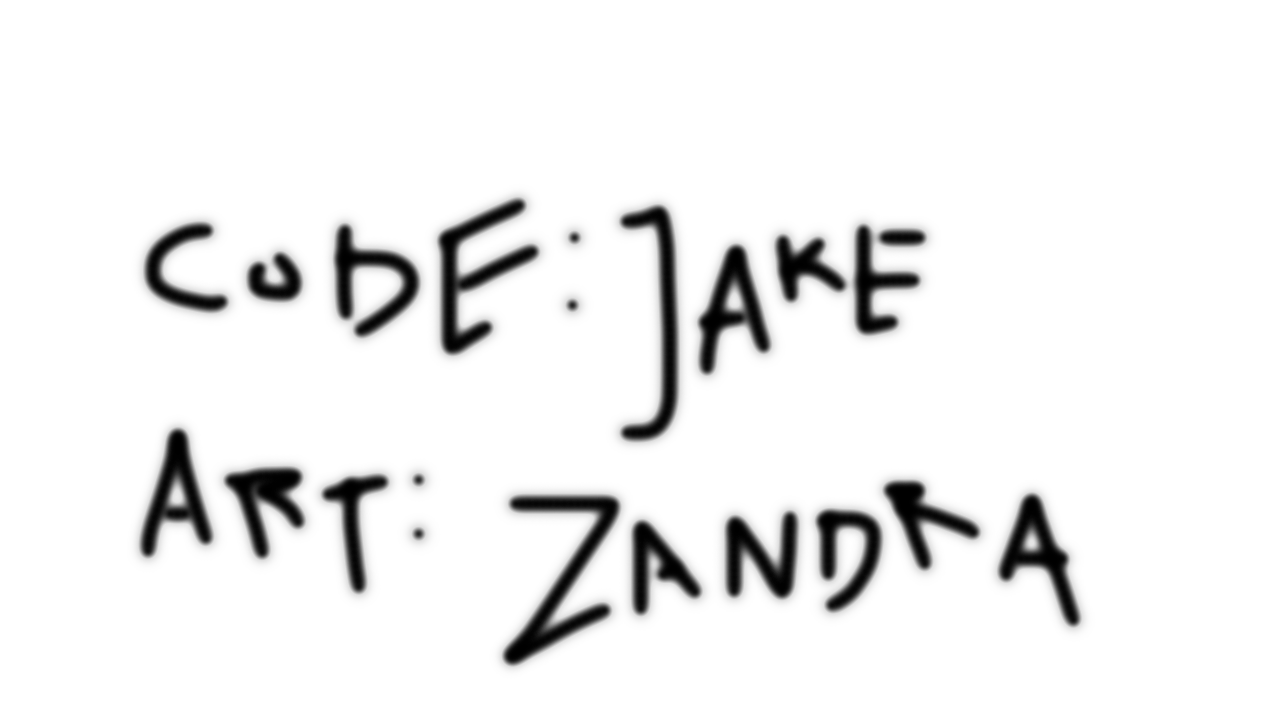 CODE: JAKE
ART: ZANDRA